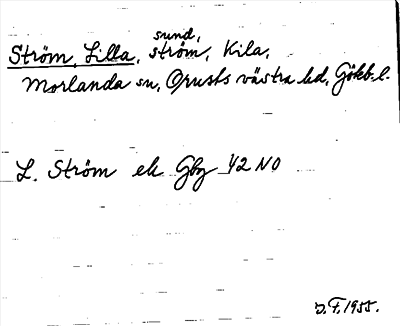 sund,
Ström, Lilla, ström, Kila,
Morlanda sn, Orusts västra hd, Gbkb. l.
L. Ström ek Gbg 42 NO
D.F. 1955.